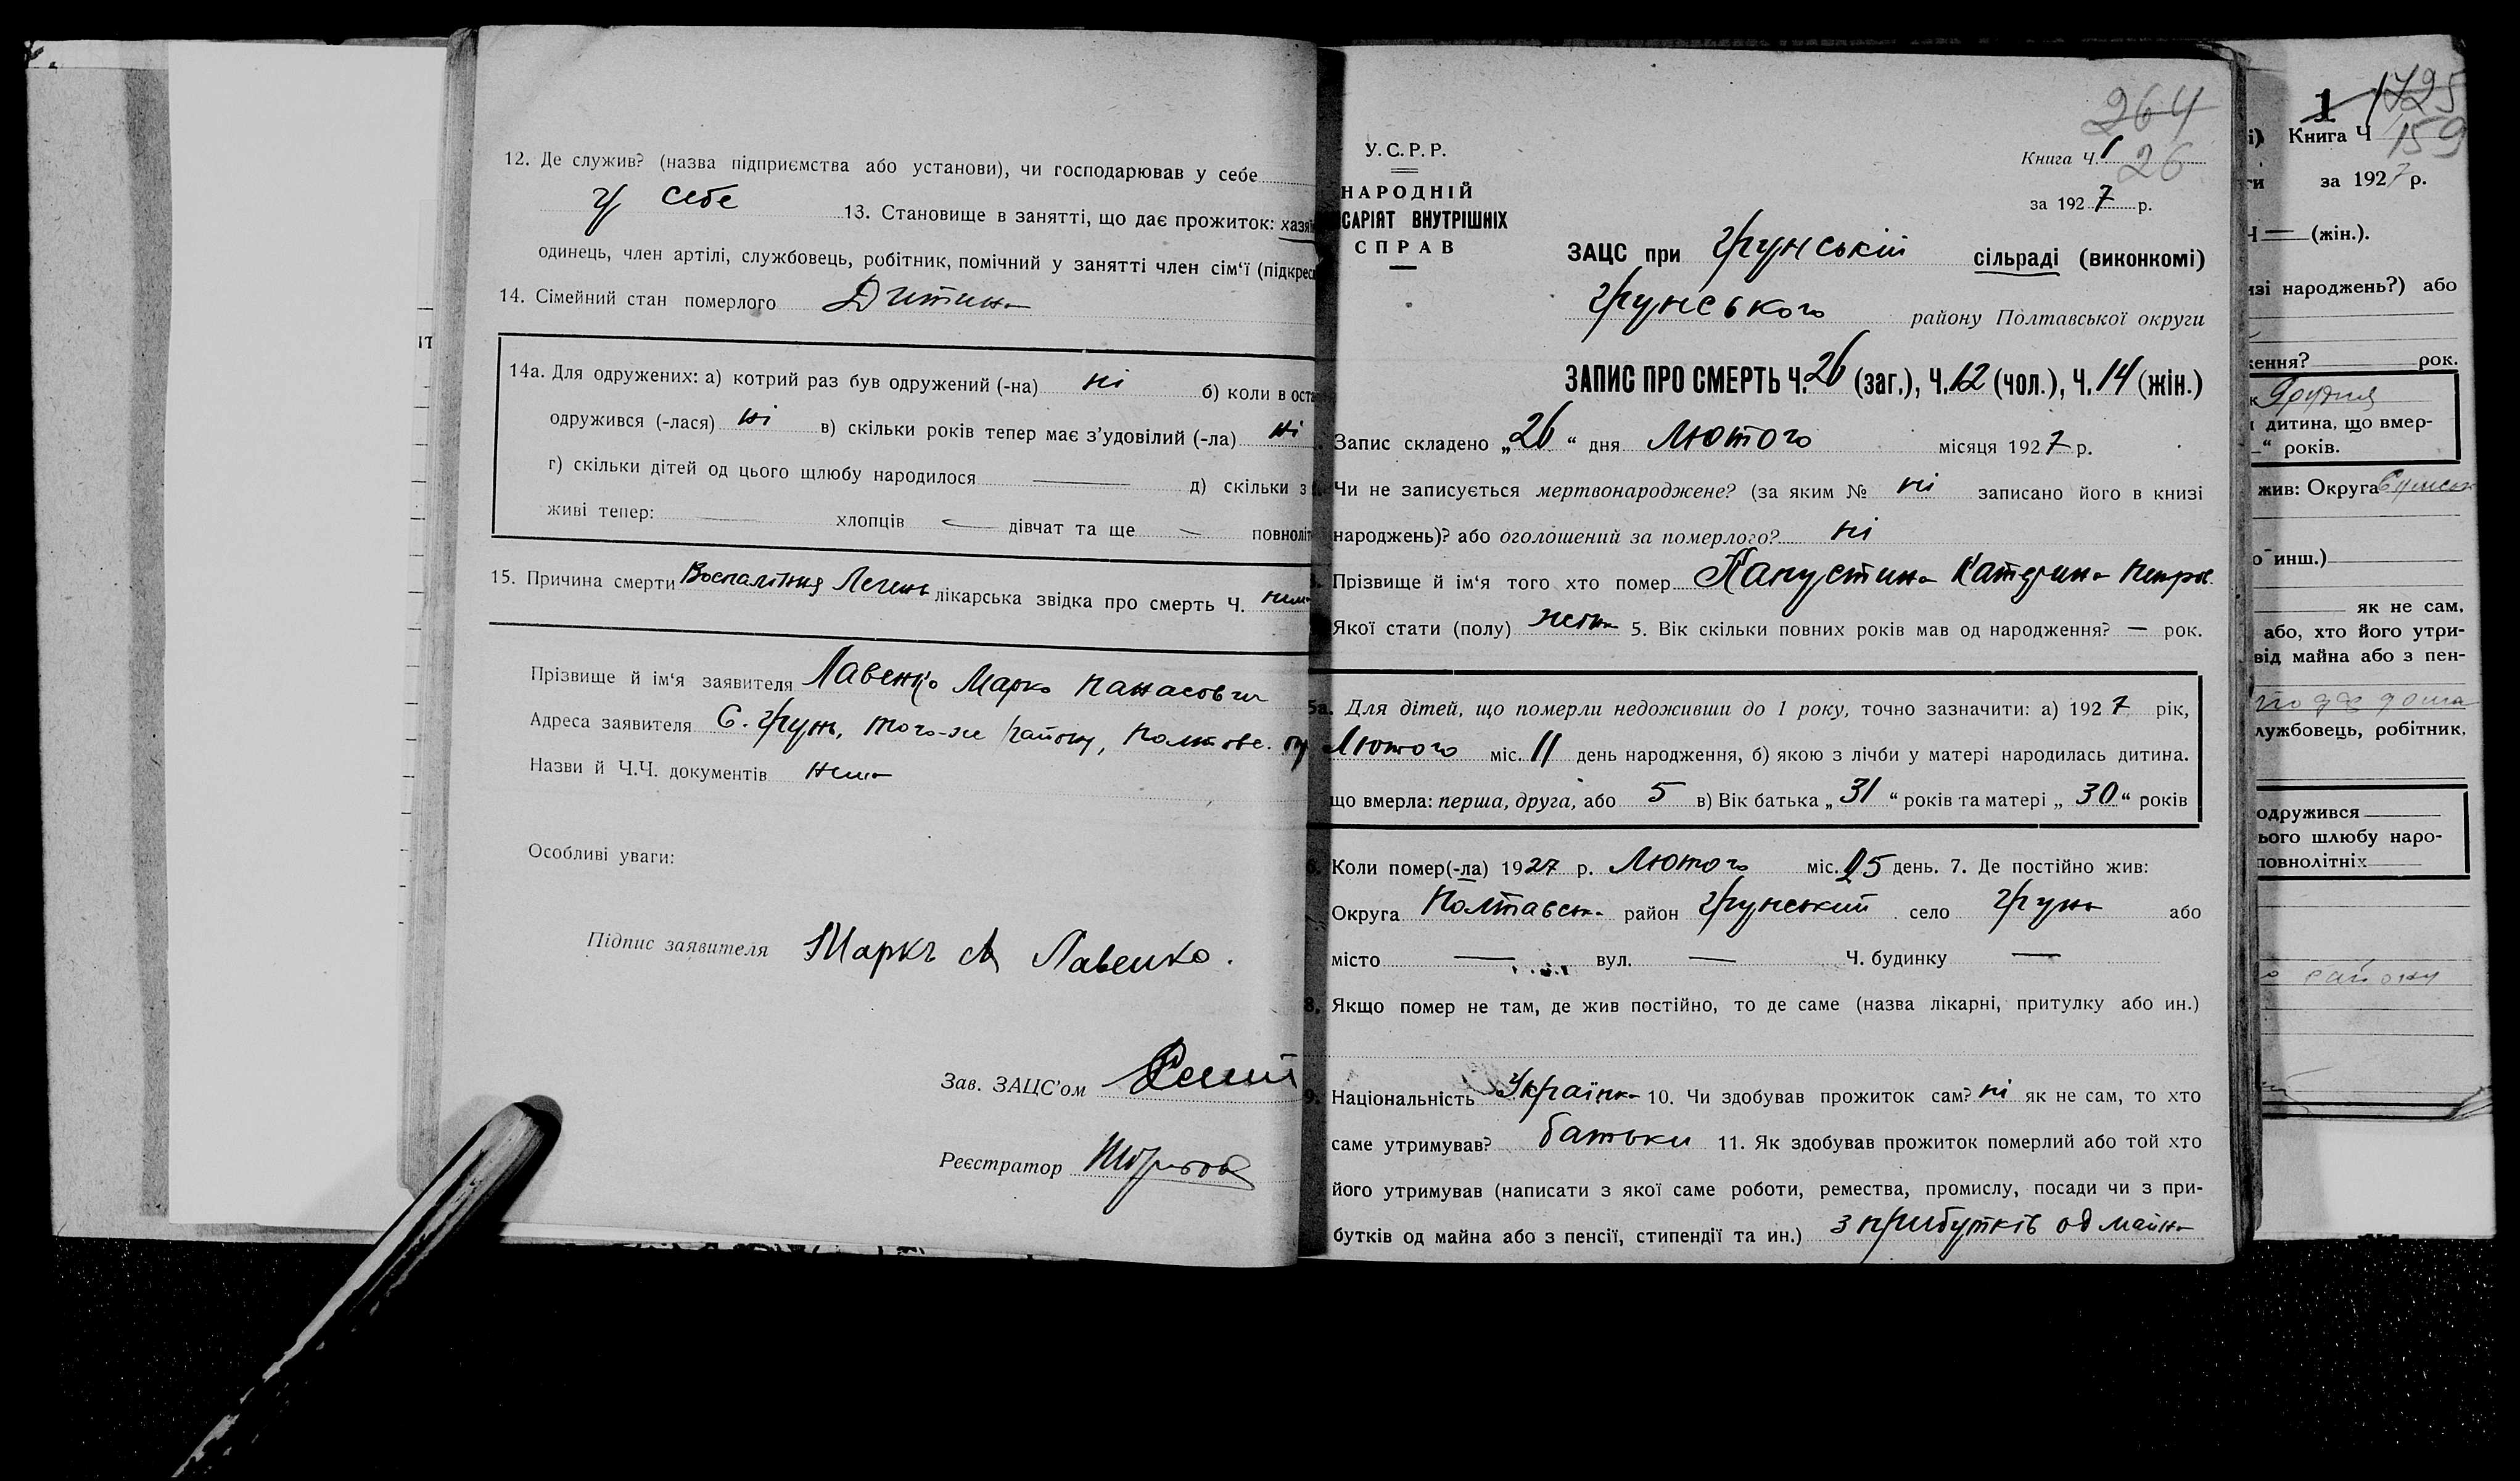 12. Де служив? (назва підприємства або установи), чи господарював у себе
У себе 13. Становище в занятті, що дає прожиток: хазяї
одинець, член артілі, службовець, робітник, помічний у занятті член сім‘ї (підкрес
14. Сімейний стан померлого Дитина
14а. Для одружених: а) котрий раз був одружений (-на) ні б) коли в оста
одружився (-лася) ні в) скільки років тепер має з’удовілий (-ла) ні
г) скільки дітей од цього шлюбу народилося — д) скільки з
живі тепер: — хлопців — дівчат та ще — повноліт
15. Причина смерти Воспалітния Легень лікарська звідка про смерть Ч. нема
Прізвище й ім‘я заявителя Лавенко Марко Панасович
Адреса заявителя С. Грунь, того-же району, Полтавс. ок
Назви й Ч.Ч. документів нема
Особливі уваги:
Підпис заявителя Маркъ Лавенко.
Зав. ЗАЦС’ом
Реєстратор
264
У.С.Р.Р.
НАРОДНІЙ
САРІЯТ ВНУТРІШНІХ
СПРАВ
Книга Ч. 1 26
за 1927 р.
ЗАЦС при Грунській сільраді (виконкомі)
Грунського району Полтавської округи
ЗАПИС ПРО СМЕРТЬ Ч. 26 (заг.), Ч. 12 (чол.), Ч. 14 (жін.)
Запис складено „26“ дня Лютого місяця 1927 р.
Чи не записується мертвонароджене? (за яким № ні записано його в книзі
народжень)? або оголошений за померлого? ні
Прізвище й ім‘я того хто помер Капустина Катерина Петров.
Якої стати (полу) жіноч 5. Вік скільки повних років мав од народження? — рок.
5а. Для дітей, що померли недоживши до 1 року, точно зазначити: а) 1927 рік,
Лютого міс. 11 день народження, б) якою з лічби у матері народилась дитина.
що вмерла: перша, друга, або 5 в) Вік батька „31“ років та матері „30“ років
6. Коли помер(-ла) 1927 р. Лютого міс. 25 день. 7. Де постійно жив:
Округа Полтавськ. район Грунський село Грунь або
місто — вул. — Ч. будинку —
8. Якщо помер не там, де жив постійно, то де саме (назва лікарні, притулку або ин.)
9. Національність Українка 10. Чи здобував прожиток сам? ні як не сам, то хто
саме утримував? батьки 11. Як здобував прожиток померлий або той хто
його утримував (написати з якої саме роботи, ремества, промислу, посади чи з при-
бутків од майна або з пенсії, стипендії та ин.) з прибутків од майна
1 1725
Книга Ч 159
за 1927 р.
Ч — (жін.).
зі народжень?) або
ження? рок.
Грудня
дитина, що вмер-
“ років.
жив: Округа Сумськ
о инш.)
як не сам,
або, хто його утри-
від майна або з пен-
лужбовець, робітник,
одружився
ього шлюбу наро-
повнолітніх
району